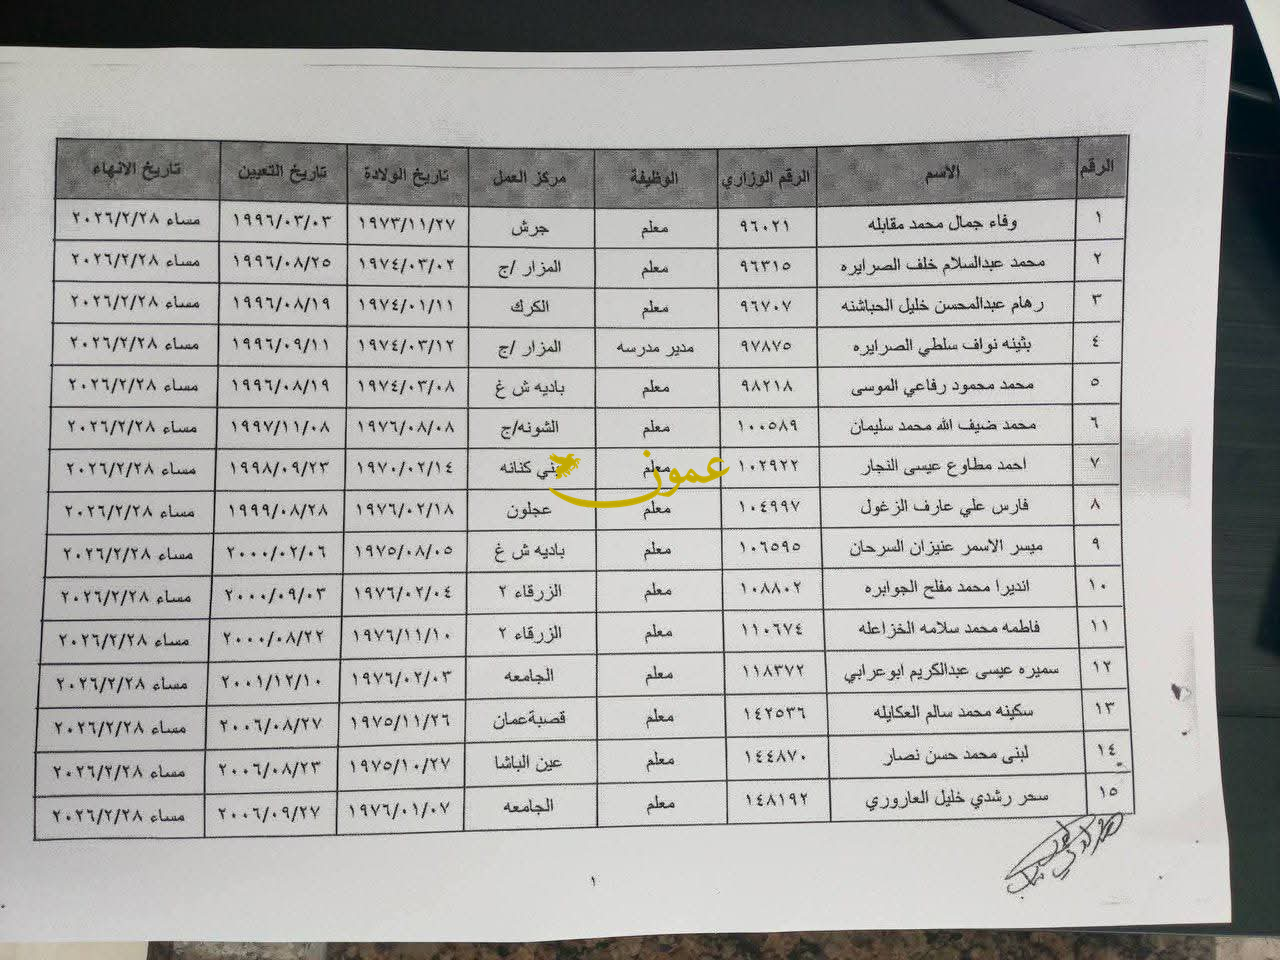 الرقم الاسم الرقم الوزاري الوظيفة مركز العمل تاريخ الولادة تاريخ التعيين تاريخ الانهاء
١ وفاء جمال محمد مقابله ٩٦٠٢١ معلم جرش ١٩٧٣/١١/٢٧ ١٩٩٦/٠٣/٠٣ مساء ٢٠٢٦/٢/٢٨
٢ محمد عبدالسلام خلف الصرايره ٩٦٣١٥ معلم المزار /ج ١٩٧٤/٠٣/٠٢ ١٩٩٦/٠٨/٢٥ مساء ٢٠٢٦/٢/٢٨
٣ رهام عبدالمحسن خليل الحباشنه ٩٦٧٠٧ معلم الكرك ١٩٧٤/٠١/١١ ١٩٩٦/٠٨/١٩ مساء ٢٠٢٦/٢/٢٨
٤ بثينه نواف سلطي الصرايره ٩٧٨٧٥ مدير مدرسه المزار /ج ١٩٧٤/٠٣/١٢ ١٩٩٦/٠٩/١١ مساء ٢٠٢٦/٢/٢٨
٥ محمد محمود رفاعي الموسى ٩٨٢١٨ معلم باديه ش غ ١٩٧٤/٠٣/٠٨ ١٩٩٦/٠٨/١٩ مساء ٢٠٢٦/٢/٢٨
٦ محمد ضيف الله محمد سليمان ١٠٠٥٨٩ معلم الشونه/ج ١٩٧٦/٠٨/٠٨ ١٩٩٧/١١/٠٨ مساء ٢٠٢٦/٢/٢٨
٧ احمد مطاوع عيسى النجار ١٠٢٩٢٢ معلم بني كنانه ١٩٧٠/٠٢/١٤ ١٩٩٨/٠٩/٢٣ مساء ٢٠٢٦/٢/٢٨
عمون
٨ فارس علي عارف الزغول ١٠٤٩٩٧ معلم عجلون ١٩٧٦/٠٢/١٨ ١٩٩٩/٠٨/٢٨ مساء ٢٠٢٦/٢/٢٨
٩ ميسر الاسمر عنيزان السرحان ١٠٦٥٩٥ معلم باديه ش غ ١٩٧٥/٠٨/٠٥ ٢٠٠٠/٠٢/٠٦ مساء ٢٠٢٦/٢/٢٨
١٠ انديرا محمد مفلح الجوابره ١٠٨٨٠٢ معلم الزرقاء ٢ ١٩٧٦/٠٢/٠٤ ٢٠٠٠/٠٩/٠٣ مساء ٢٠٢٦/٢/٢٨
١١ فاطمه محمد سلامه الخزاعله ١١٠٦٧٤ معلم الزرقاء ٢ ١٩٧٦/١١/١٠ ٢٠٠٠/٠٨/٢٢ مساء ٢٠٢٦/٢/٢٨
١٢ سميره عيسى عبدالكريم ابوعرابي ١١٨٣٧٢ معلم الجامعه ١٩٧٦/٠٢/٠٣ ٢٠٠١/١٢/١٠ مساء ٢٠٢٦/٢/٢٨
١٣ سكينه محمد سالم العكايله ١٤٢٥٣٦ معلم قصبةعمان ١٩٧٥/١١/٢٦ ٢٠٠٦/٠٨/٢٧ مساء ٢٠٢٦/٢/٢٨
١٤ لبنى محمد حسن نصار ١٤٤٨٧٠ معلم عين الباشا ١٩٧٥/١٠/٢٧ ٢٠٠٦/٠٨/٢٣ مساء ٢٠٢٦/٢/٢٨
١٥ سحر رشدي خليل العاروري ١٤٨١٩٢ معلم الجامعه ١٩٧٦/٠١/٠٧ ٢٠٠٦/٠٩/٢٧ مساء ٢٠٢٦/٢/٢٨
١